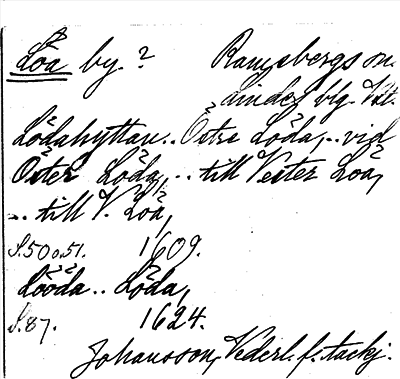 Löa by. ? Ramsbergs sn.
Lindes blg. Vstm.
Lödahyttan.. Östre Löda,.. vid
Öster Löda,.. till Vester Löa,
.. till V. Löa,
S. 50 o. 51. 1609.
Lööda.. Löda,
S. 87. 1624.
Johansson, Vederl. f. tackj.